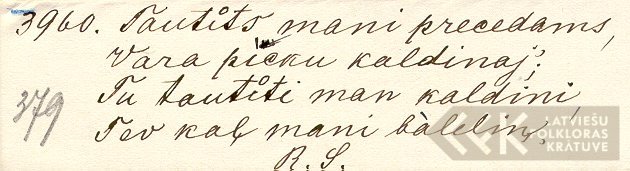 3960. Tautits mani precedams,
Vara picku kaldinaj;
379 Tu tautiti man kaldini
Tev kal mani bàlelin,
R. S.
LATVIEŠU
FOLKLORAS
KRĀTUVE